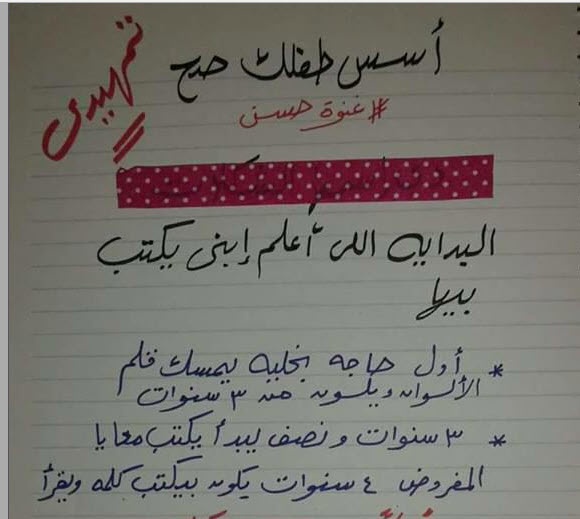 تمهيدى
أسس طفلك صح
#غنوة حسن
البدايه اللى أعلم إبنى يكتب
بيها
* أول حاجه بخليه يمسك قلم
الألوان ويلون من ٣ سنوات
* ٣ سنوات ونصف يبدأ يكتب معايا
المفروض ٤ سنوات يكون بيكتب كلمه ويقرأ